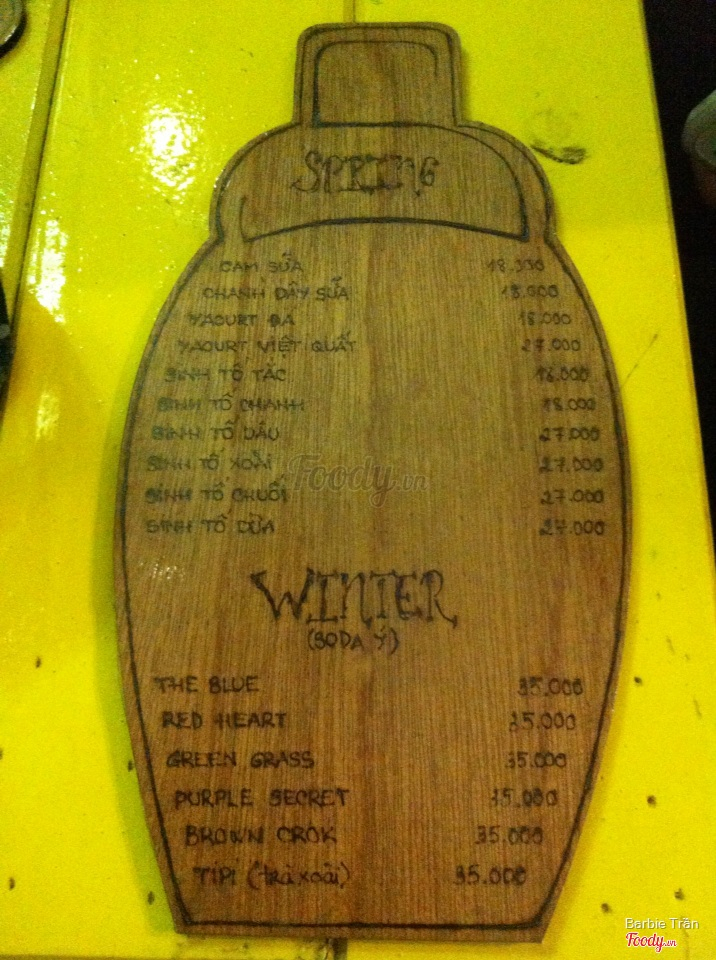 SPRING
CAM SỮA 18.000
CHANH DÂY SỮA 18.000
YAOURT ĐÁ 18.000
YAOURT VIỆT QUẤT 27.000
SINH TỐ TẮC 18.000
SINH TỐ CHANH 18.000
SINH TỐ DÂU 27.000
SINH TỐ XOÀI 27.000
SINH TỐ CHUỐI 27.000
SINH TỐ DỪA 27.000
Foody.vn
WINTER
(SODA Ý)
THE BLUE 35.000
RED HEART 35.000
GREEN GRASS 35.000
PURPLE SECRET 35.000
BROWN CROK 35.000
TIPI (trà xoài) 35.000
Barbie Trần
Foody.vn